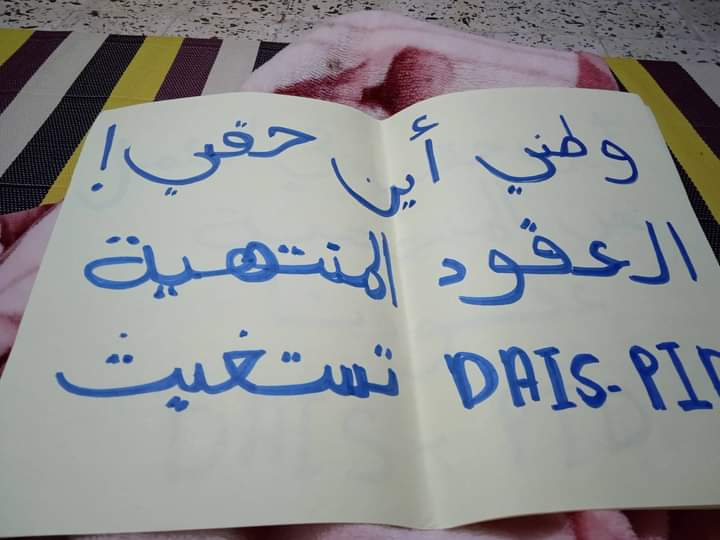 وطني أين حقي!
العقود المنتهية
DAIS-PID تستغيث